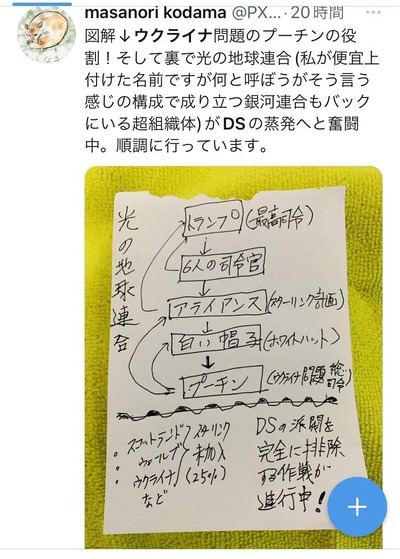 masanori kodama @PX... · 20時間
図解↓ウクライナ問題のプーチンの役
割！そして裏で光の地球連合 (私が便宜上
付けた名前ですが何と呼ぼうがそう言う
感じの構成で成り立つ銀河連合もバック
にいる超組織体) がDSの蒸発へと奮闘
中。順調に行っています。
光の地球連合
トランプ (最高司令)
6人の司令官
アライアンス (スターリング計画)
白い帽子 (ホワイトハット)
プーチン (ウクライナ問題 総司令)
スコットランド
ウェールズ
ウクライナ
など
未加入
(25%)
DSの派閥を
完全に排除
する作戦が
進行中！